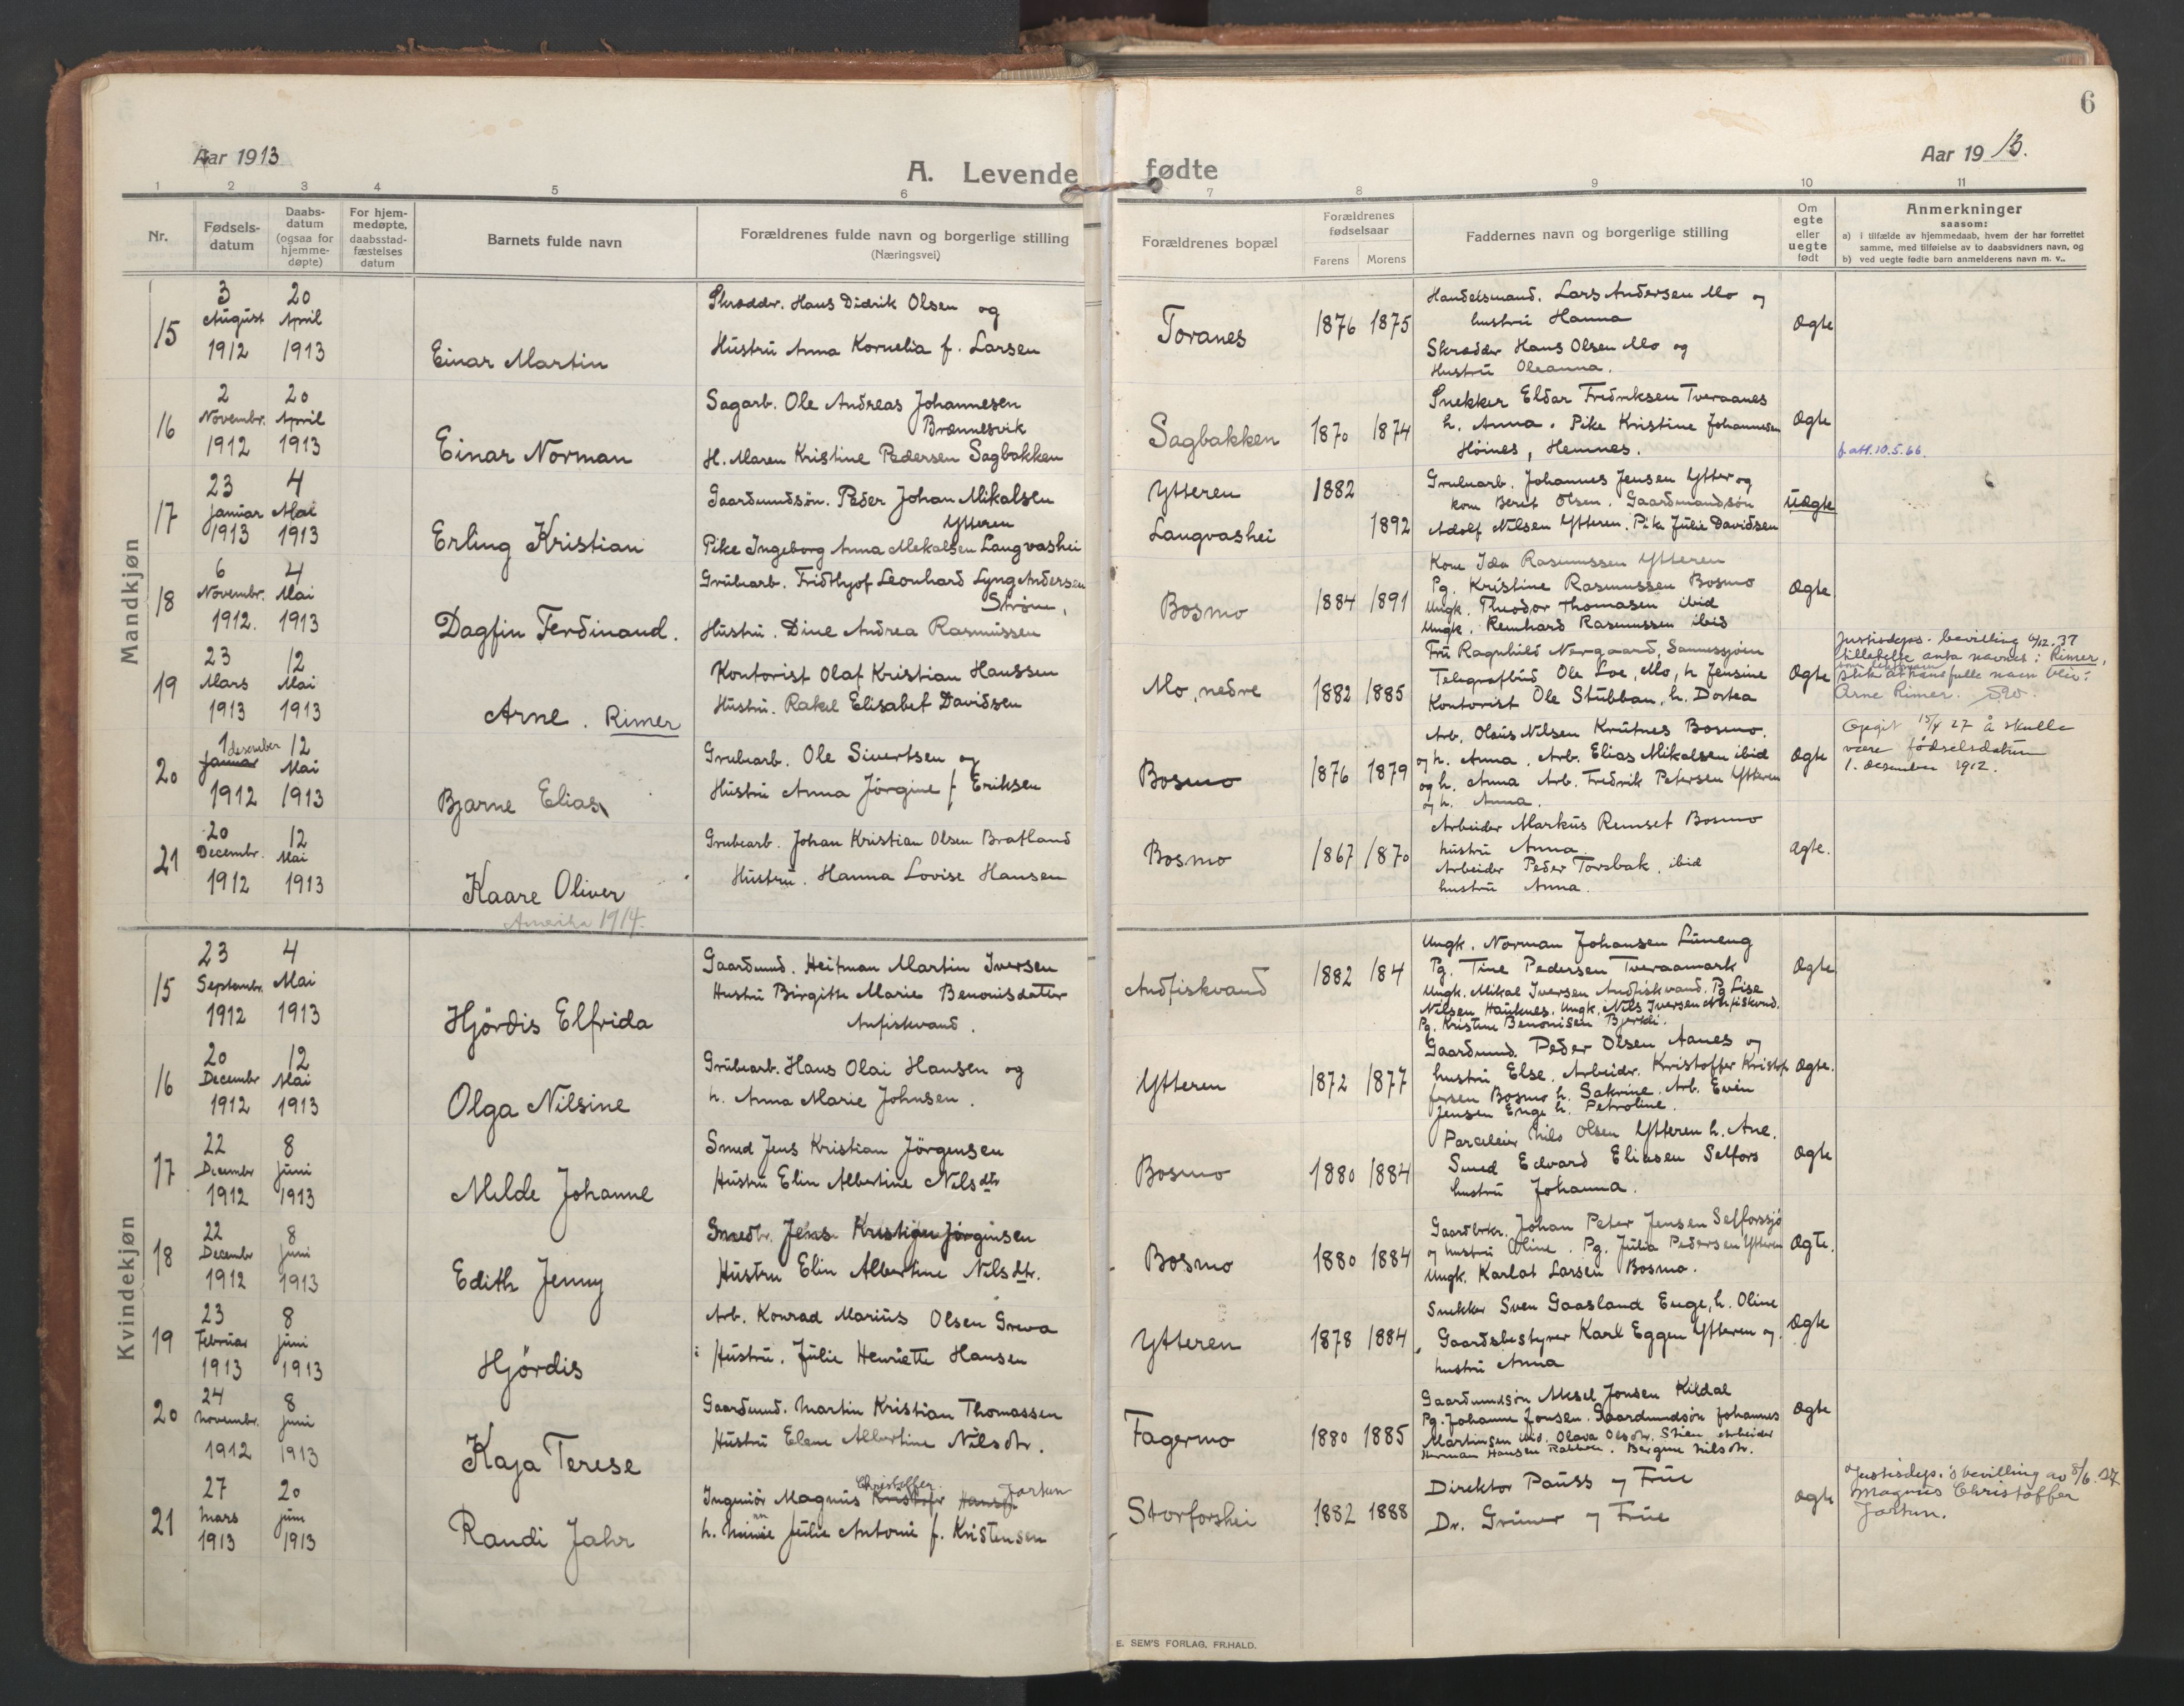 6
Aar 1913
A. Levende fødte
Aar 1913.
1 2 3 4 5 6 7 8 9 10 11
Nr.
Fødsels-
datum
Daabs-
datum
(ogsaa for
hjemme-
døpte)
For hjem-
medøpte,
daabsstad-
fæstelses
datum
Barnets fulde navn
Forældrenes fulde navn og borgerlige stilling
(Næringsvei)
Forældrenes bopæl
Forældrenes
fødselsaar
Farens Morens
Faddernes navn og borgerlige stilling
Om
egte
eller
uegte
født
Anmerkninger
saasom:
a) i tilfælde av hjemmedaab, hvem der har forrettet
samme, med tilføielse av to daabsvidners navn, og
b) ved uegte fødte barn anmelderens navn m. v..
Mandkjøn
15
3
August
1912
20
April
1913
Einar Martin
Skrædder. Hans Didrik Olsen og
Hustru Anna Kornelia f. Larsen
Toranes
1876 1875
Handelsmand. Lars Andersen Mo og
hustru Hanna
Skrædder Hans Olsen Mo og
Hustru Oleanna.
Ægte
16
2
Novembr.
1912
20
April
1913
Einar Norman
Sagarb. Ole Andreas Johannesen
Brænnesvik
H. Maren Kristine Pedersen Sagbakken
Sagbakken
1870 1874
Snekker Eldar Fredriksen Tveraanes
h. Anna. Pike Kristine Johannesen
Høines, Hemnes.
Ægte
f.att. 10.5.66.
17
23
Januar
1913
4
Mai
1913
Erling Kristian
Gaardmundsøn. Peder Johan Mikalsen
Ytteren
Pike Ingeborg Anna Mekalsen Langvashei
Ytteren
Langvashei
1882
1892
Grubearb. Johannes Jensen Ytter og
kone Berit Olsen. Gaardmandsøn
Adolf Nilsen Ytteren. Pike Julie Davidsen
Uægte
18
6
Novembr.
1912.
4
Mai
1913
Dagfin Ferdinand.
Grubearb. Fridthjof Leonhard Lyng Andersen
Strøm,
Hustru. Dine Andrea Rasmussen
Bosmo
1884 1891
Kone Ida Rasmussen Ytteren
Pg. Kristine Rasmussen Bosmo
Ungk. Theodor Thomasen ibid
Ungk. Reinhard Rasmussen ibid
Ægte
19
23
Mars
1913
12
Mai
1913
Arne. Rimer
Kontorist Olaf Kristian Hanssen
Hustru. Rakel Elisabet Davidsen
Mo, nedre
1882 1885
Fru Ragnhild Nergaard, Sannessjøen
Telegrafbud Ole Loe, Mo, h. Jensine
Kontorist Ole Stubban, h. Dortea
Ægte
Justisdeps. bevilling 6/12.37
tillatelse anta navnet: Rimer,
som slektsnavn
slik at hans fulle navn blir:
Arne Rimer.
20
1 desember
Januar
1912
12
Mai
1913
Bjarne Elias
Grubearb. Ole Sivertsen og
Hustru Anna Jörgine f. Eriksen
Bosmo
1876 1879
Arb. Olaus Nilsen Krutnes Bosmo.
og h. Anna. Arb. Elias Mikalsen ibid
og h. Anna Arb. Fredrik Petersen Ytteren
og h. Anna.
Ægte
Opgit 15/4 27 å skulle
være fødselsdatum
1. desember 1912.
21
20
Decembr.
1912
12
Mai
1913
Kaare Oliver
Amerika 1914.
Grubearb. Johan Kristian Olsen Bratland
Hustru. Hanna Lovise Hansen
Bosmo
1867 1870
Arbeider Markus Remset Bosmo
hustru Anna.
Arbeider Peder Torsbak, ibid
hustru Anna.
Ægte.
Kvindekjøn
15
23
Septembr.
1912
4
Mai
1913
Hjördis Elfrida
Gaardmd. Heitman Martin Iversen
Hustru Birgitte Marie Benonisdatter
Anfiskvand.
Andfiskvand
1882 184
Ungk. Norman Johansen Luneng
Pg. Tine Pedersen Tveraamark
Ungk. Mikal Iversen Andfiskvand. Pg Lise
Nilsen Hauknes. Ungk. Nils Iversen Andfiskvnd.
Pg. Kristine Benonisen
Ægte
16
20
Decembr
1912
12
Mai
1913
Olga Nilsine
Grubearb. Hans Olai Hansen og
h. Anna Marie Johnsen.
Ytteren
1872 1877
Gaardmd. Peder Olsen Aanes og
hustru Else. Arbeidr. Kristoffer Kristof
fersen Bosmo h. Sakrine. Arb. Even
Jensen Enge h. Petroline.
Ægte.
17
22
Decembr
1912
8
Juni
1913
Milde Johanne
Smed Jens Kristian Jörgensen
Hustru Elin Albertine Nilsdtr
Bosmo
1880 1884
Parceleier Nils Olsen Ytteren h. Ane.
Smed Edvard Eliasen Selfors
hustru Johanna.
Ægte
18
22
Decembr
1912
8
Juni
1913
Edith Jenny
Smedbr. Jens Kristian Jörgensen
Hustru Elin Albertine Nilsdtr.
Bosmo
1880 1884
Gaardbrkr. Johan Peter Jensen Selforssjø
og hustru Oline. Pg. Julia Pedersen Ytteren
Ungk. Karlot Larsen Bosmo.
Ægte.
19
23
Februar
1913
8
Juni
1913
Hjördis
Arb. Konrad Marius Olsen Greva
Hustru. Julie Henriette Hansen
Ytteren
1878 1884
Snekker Sven Gaasland Enge, h. Oline
Gaardsbestyrer Karl Eggen Ytteren og
hustru Anna
Ægte
20
24
Novembr.
1912
8
Juni
1913
Kaja Terese
Gaardmd. Martin Kristian Thomassen
Hustru Elene Albertine Nilsdtr.
Fagermo
1880 1885
Gaardmandsøn Aksel Jonsen Kildal
Pg. Johanne Jonsen. Gaardmandsøn Johannes
Martinsen ibid. Olava Olsdtr. Stien Arbeider
Herman Hansen . Bergine Nilsdtr.
Ægte
21
27
Mars
1913
20
Juni
1913
Randi Jahr
Christoffer Jortun
Ingeniör Magnus Kristofr Hansen
h. Minnie Julie Antonie f. Kristensen
Storforshei
1882 1888
Direktør Pauss og Frue
Dr. Grüner og Frue
Ægte
Justisdep.'s bevilling av 8/6.27
Magnus Christoffer
Jortun.
E. SEM'S FORLAG, FR.HALD.